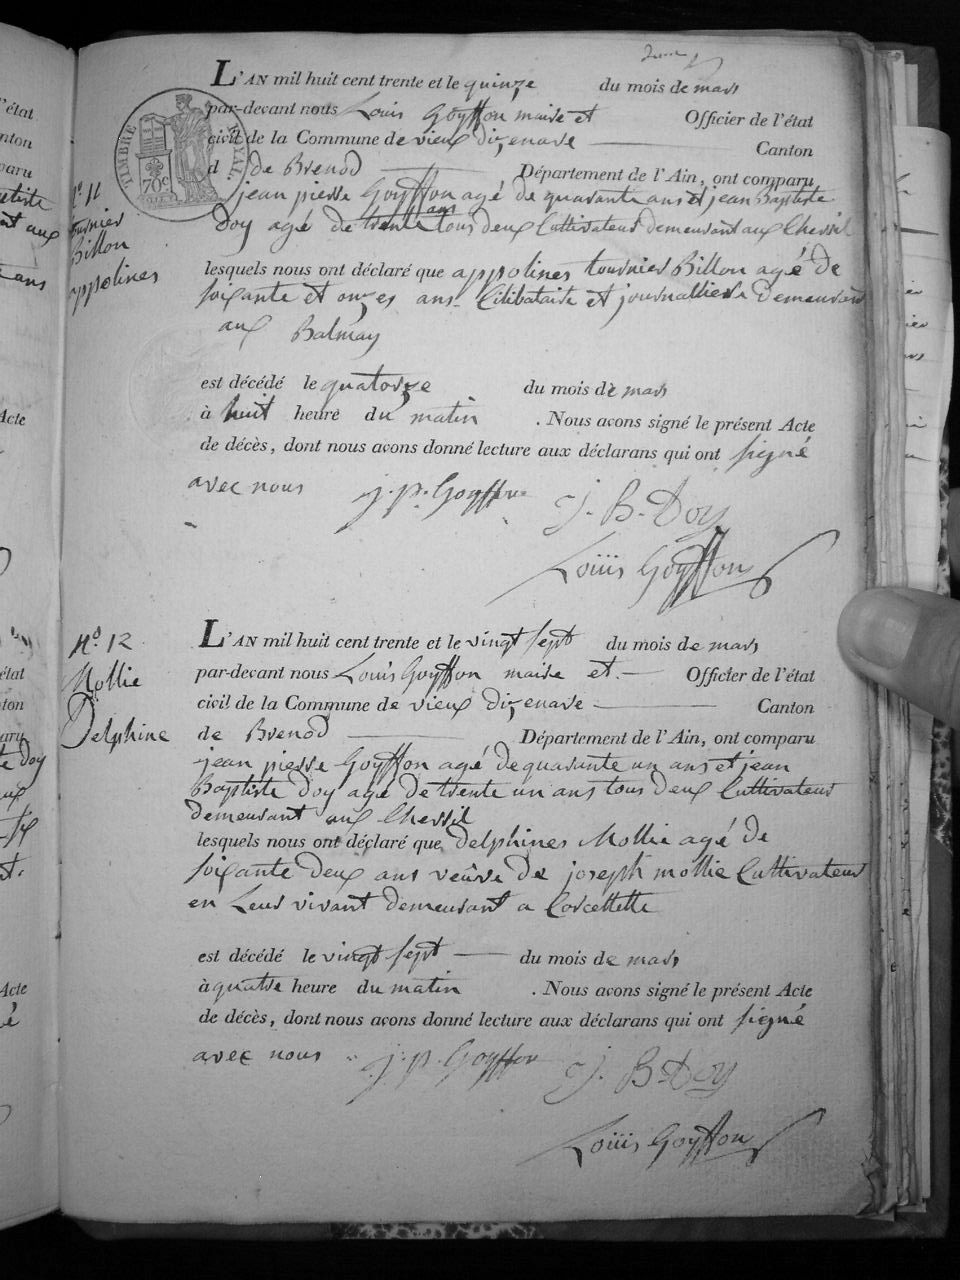 L'AN mil huit cent trente et le quinze du mois de mars
par-devant nous Louis Goyffon maire et Officier de l'état
civil de la Commune de vieux dizenave Canton
d de Brenod Département de l'Ain, ont comparu
jean pierre Goyffon agé de quarante ans et jean Baptiste
Doy agé de trente ans tous deux Cultivateur demeurant aux Chevril
lesquels nous ont déclaré que appolines tournier Billon agé de
soixante et onzes ans Célibataire et journalliere demeurant
aux Balmay
est décédé le quatorze du mois de mars
à huit heure du matin . Nous avons signé le présent Acte
de décès, dont nous avons donné lecture aux déclarans qui ont signé
avec nous j. p. Goyffon j. B. Doy
Louis Goyffon
TIMBRE ROYAL.
70c
N° 11
tournier
Billon
appolines
N° 12
Mollie
Delphine
L'AN mil huit cent trente et le vingt sept du mois de mars
par-devant nous Louis Goyffon maire et Officier de l'état
civil de la Commune de vieux dizenave Canton
de Brenod Département de l'Ain, ont comparu
jean pierre Goyffon agé de quarante un ans et jean
Baptiste doy agé de trente un ans tous deux Cultivateur
demeurant aux Chevril
lesquels nous ont déclaré que delphines Mollie agé de
soixante deux ans veuve de joseph mollie Cultivateur
en Leur vivant demeurant a Corcellette
est décédé le vingt sept du mois de mars
à quatre heure du matin . Nous avons signé le présent Acte
de décès, dont nous avons donné lecture aux déclarans qui ont signé
avec nous j. p. Goyffon j. B. Doy
Louis Goyffon